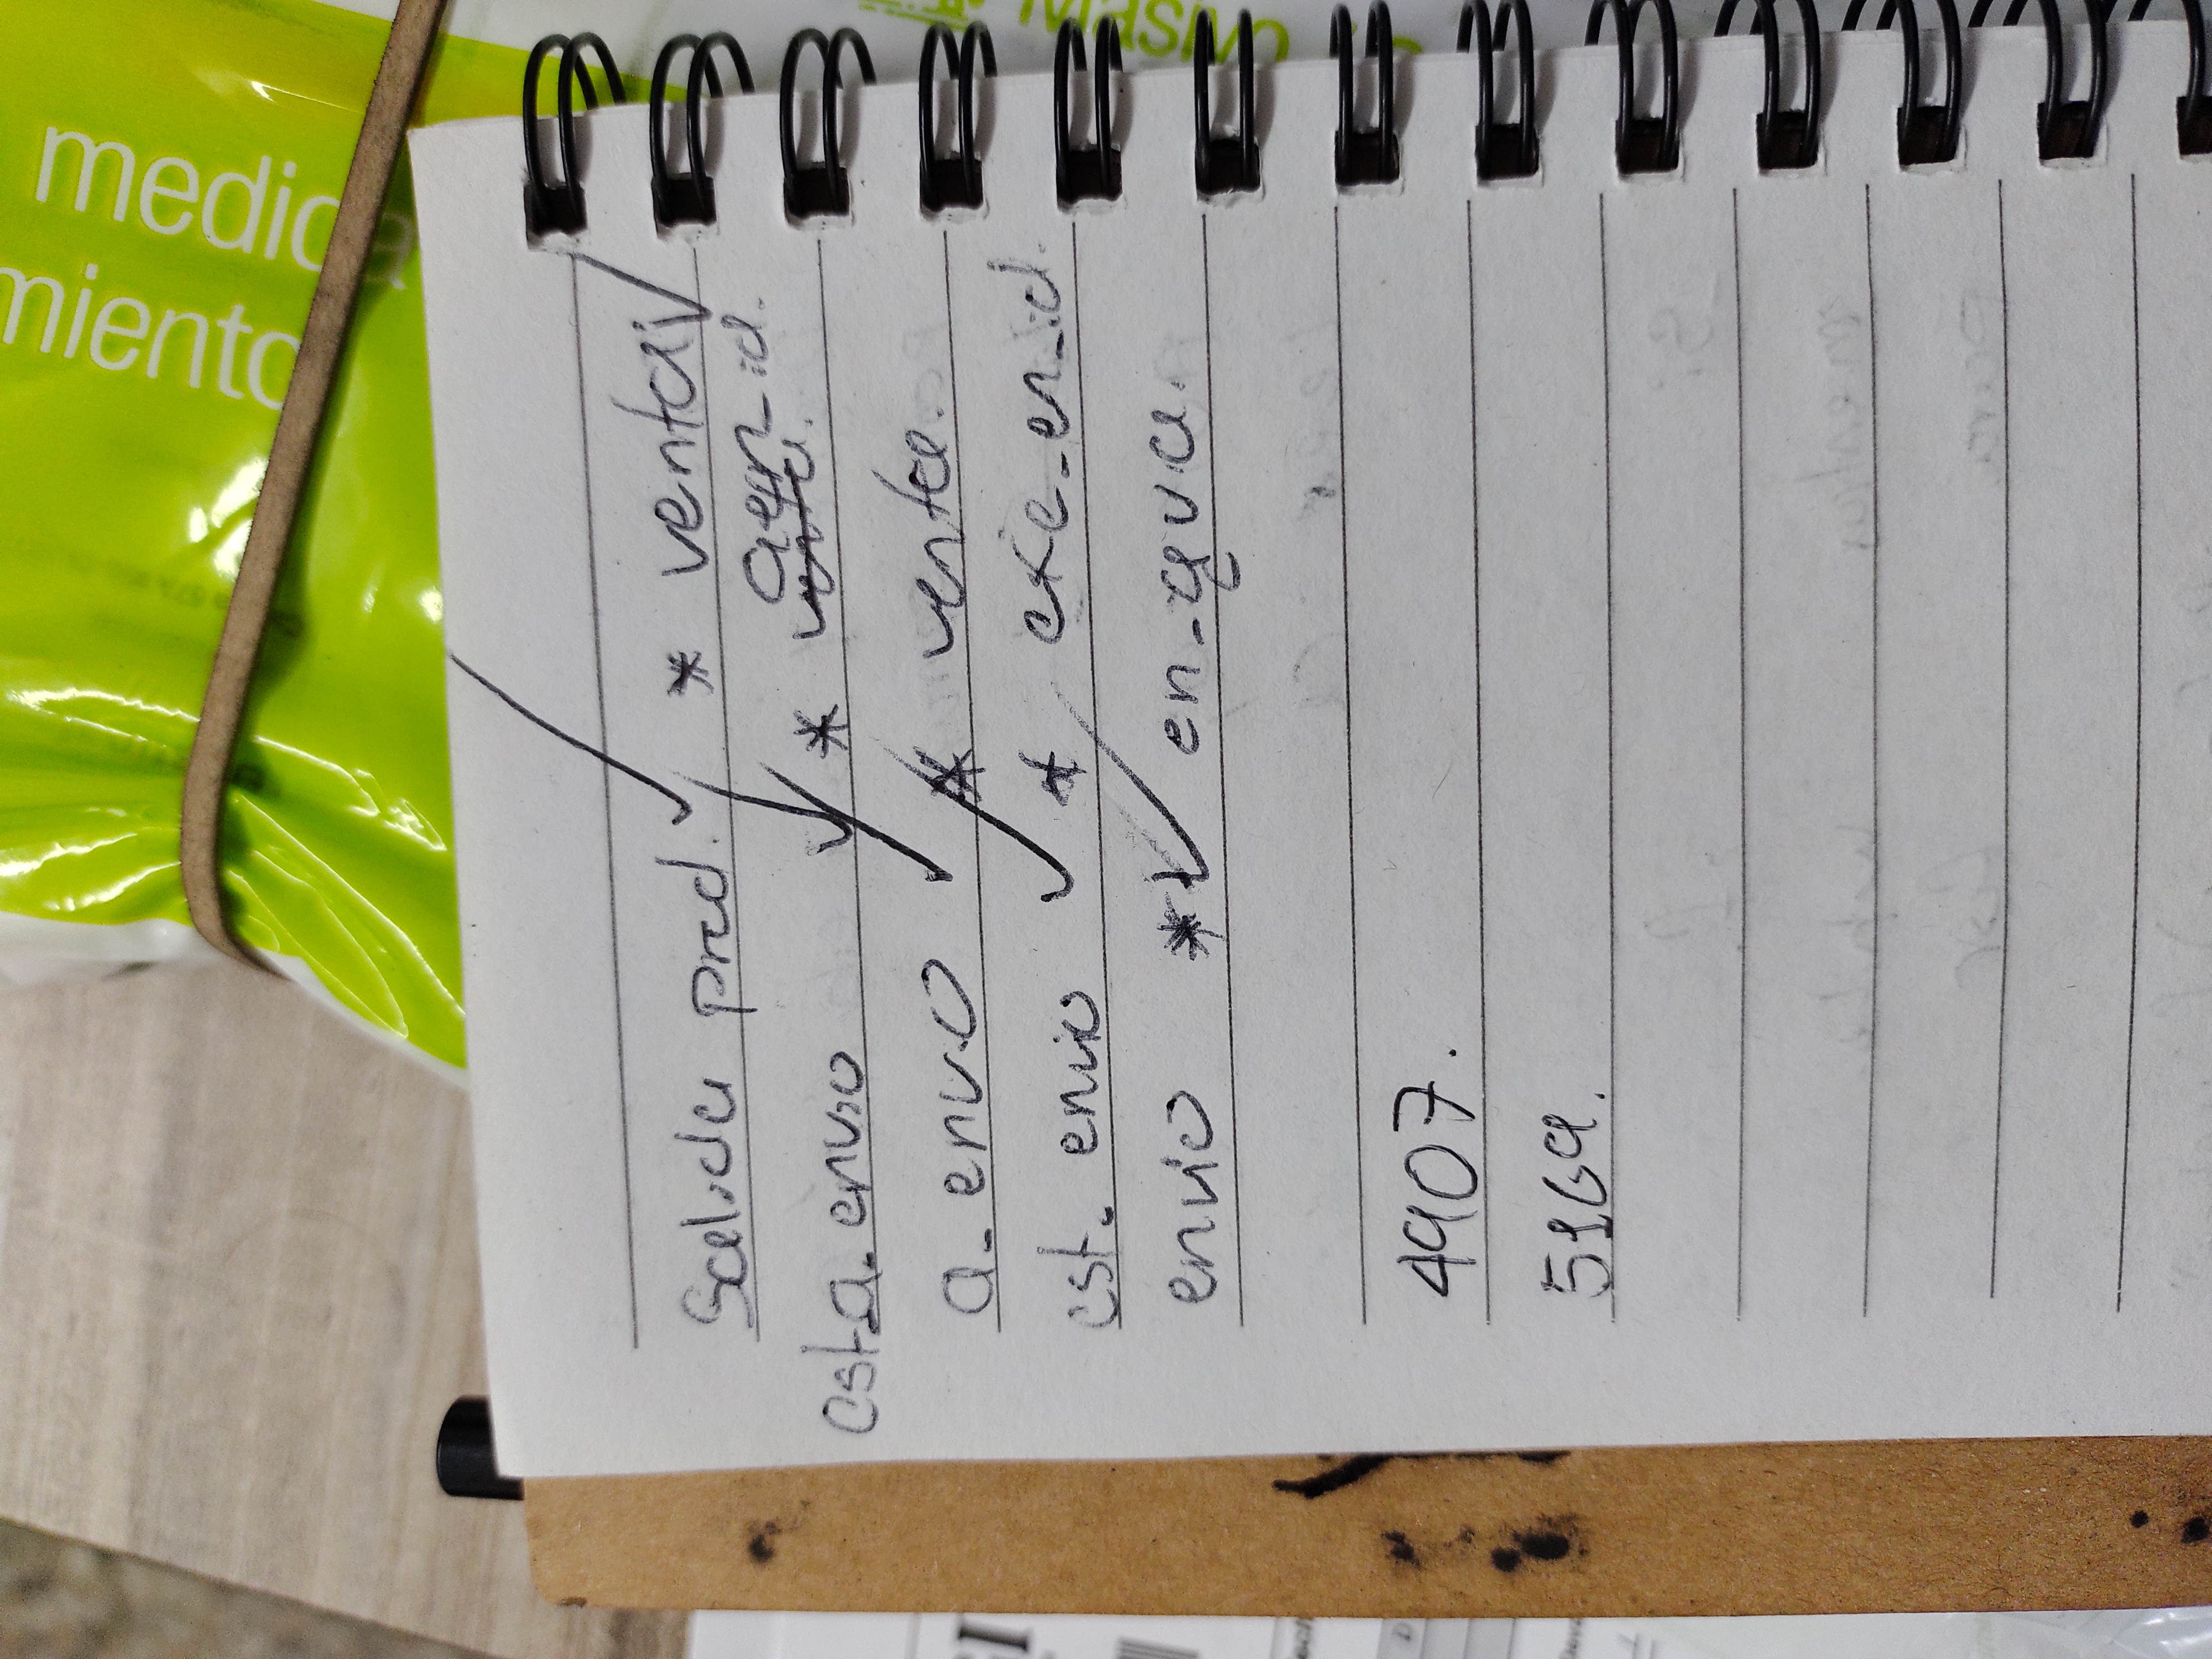 medida
miento
Salida prod. ✓ * venta ✓
est_a_envio ✓ * venta.
a_envio ✓ * venta.
est_envio ✓ * exe_en_id.
envio * ✓ en_agua.
4907.
5169.